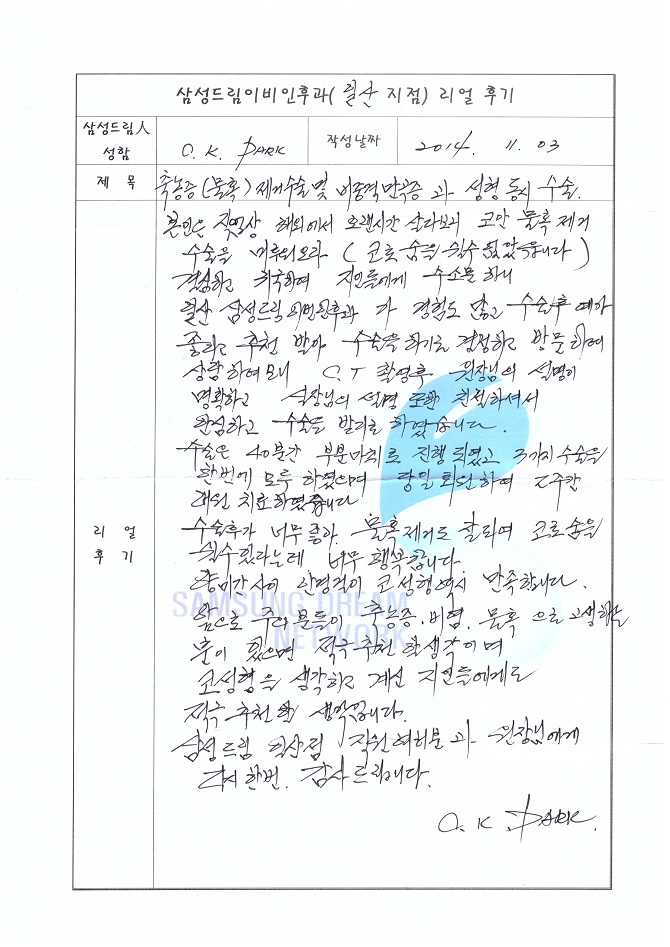 삼성드림이비인후과( 일산 지점) 리얼 후기
삼성드림人
성함
O. K. PARK
작성날짜
2014. 11. 03
제 목
축농증(물혹) 제거수술및 비중격만곡증 과 성형 동시 수술.
본인은 직업상 해외에서 오랜시간 살다보니 코안 물혹 제거
수술을 미루워오다 ( 코로 숨을 쉴수 없었습니다 )
결심하고 귀국하여 지인들에게 수소문 하니
일산 삼성드림 이비인후과 가 경험도 많고 수술후 예가
좋타고 추천 받아 수술을 하기로 결정하고 방문 하여
상담 하여보니 C.T 촬영후 원장님의 설명이
명확하고 실장님의 설명 또한 친절하셔서
안심하고 수술 하였습니다.
수술은 40분간 부분마취로 진행 되였고 3가지 수술을
한번에 모두 하였으며 당일 퇴원하여 2주간
내원 치료하였습니다
리 얼
후 기
수술후가 너무 좋아. 물혹제거도 잘되여 코로 숨을
쉴수 있다는데 너무 행복합니다.
양미간사이 안경걸이 코성형 역시 만족합니다.
SAMSUNG DREAM
NETWORK
앞으로 주위 분들이 축농증. 비염. 물혹 으로 고생하는
분이 있으면 적극 추천 할생각이며
코성형을 생각하고 계신 지인들에게도
적극 추천 할 생각입니다.
삼성드림 일산점 직원 여러분 과 원장님에게
다시 한번. 감사 드립니다.
O. K. PARK.